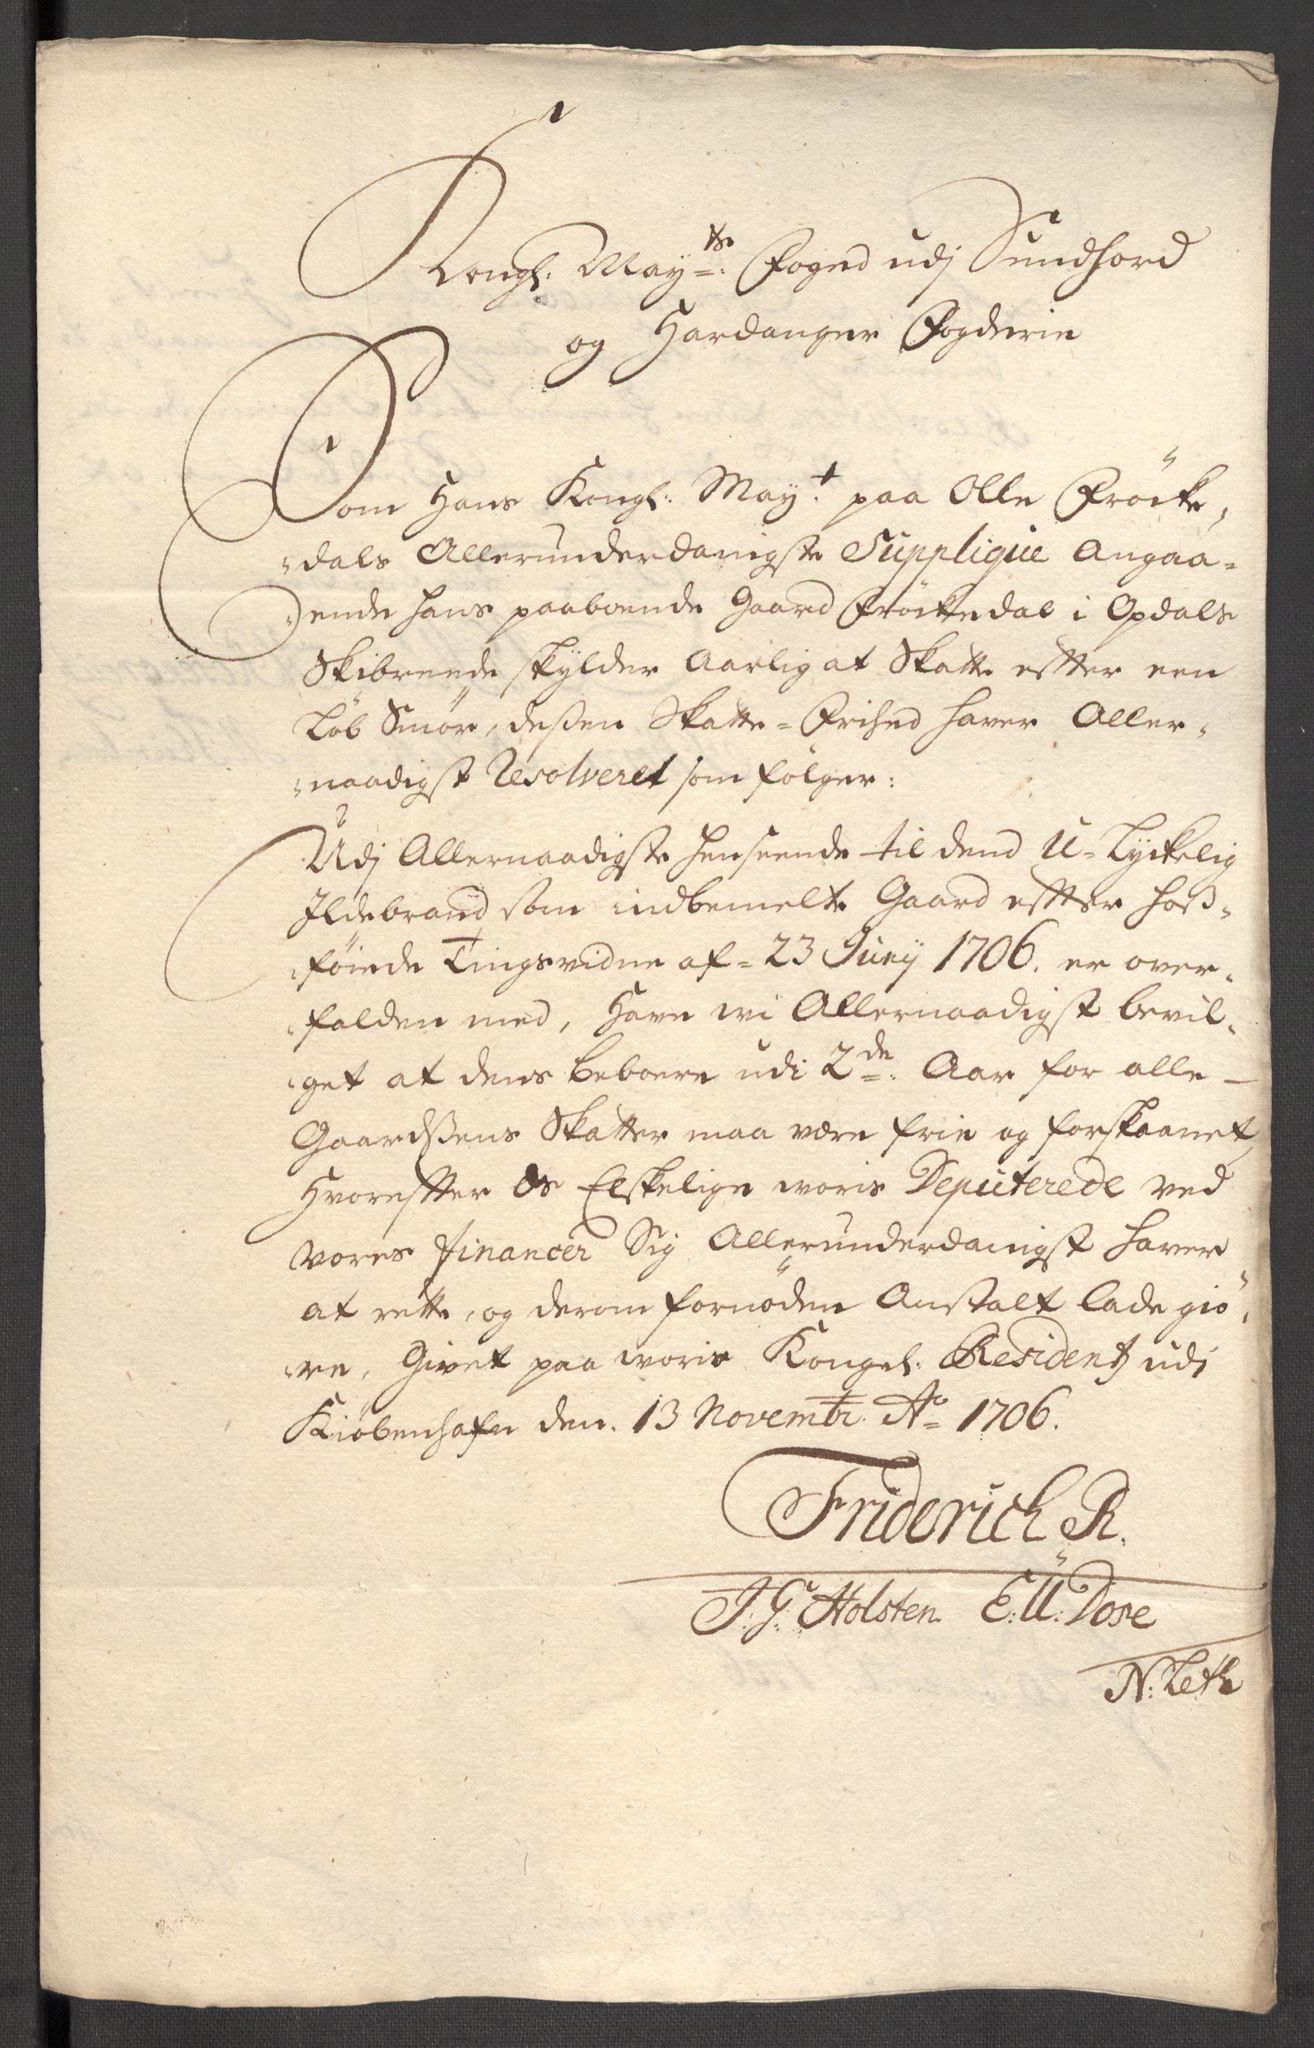 Kongl: May.ts Foged udj Sundhord
og Hardanger Fogderie
Som Hans Kongl: May.t paa Olle Fröcke,
dals Allerunderdanigste Supplique Angaa-
ende hans paaboende Gaard Fröckedal i Opdals
Skibreede skylder Aarlig at Skatte effter een
Löb Smör, deßen Skatte-Frihed haver Aller-
naadigst Resolveret som fölger:
Udj Allernaadigste henseende til dend U-Lyckelig
Ildebrand som indbemelte Gaard effter hoß-
föiede Tingsvidne af 23 Junij 1706. er over-
falden med, Have wi Allernaadigst bevil-
get at dens beboere udi 2de Aar for alle
Gaardßens Skatter maa være frie og forskaanet,
Hvoreffter Os Elskelige woris Deputerede ved
vores Financer Sig Allerunderdanigst haver
at rette, og derom fornöden Anstalt lade giö-
re, Givet paa woris Kongel: Residentz udi
Kiöbenhafn den. 13 Novembr. Ao 1706.
Friderich R.
J: G: Holsten. E: U: Dose
N: Leth